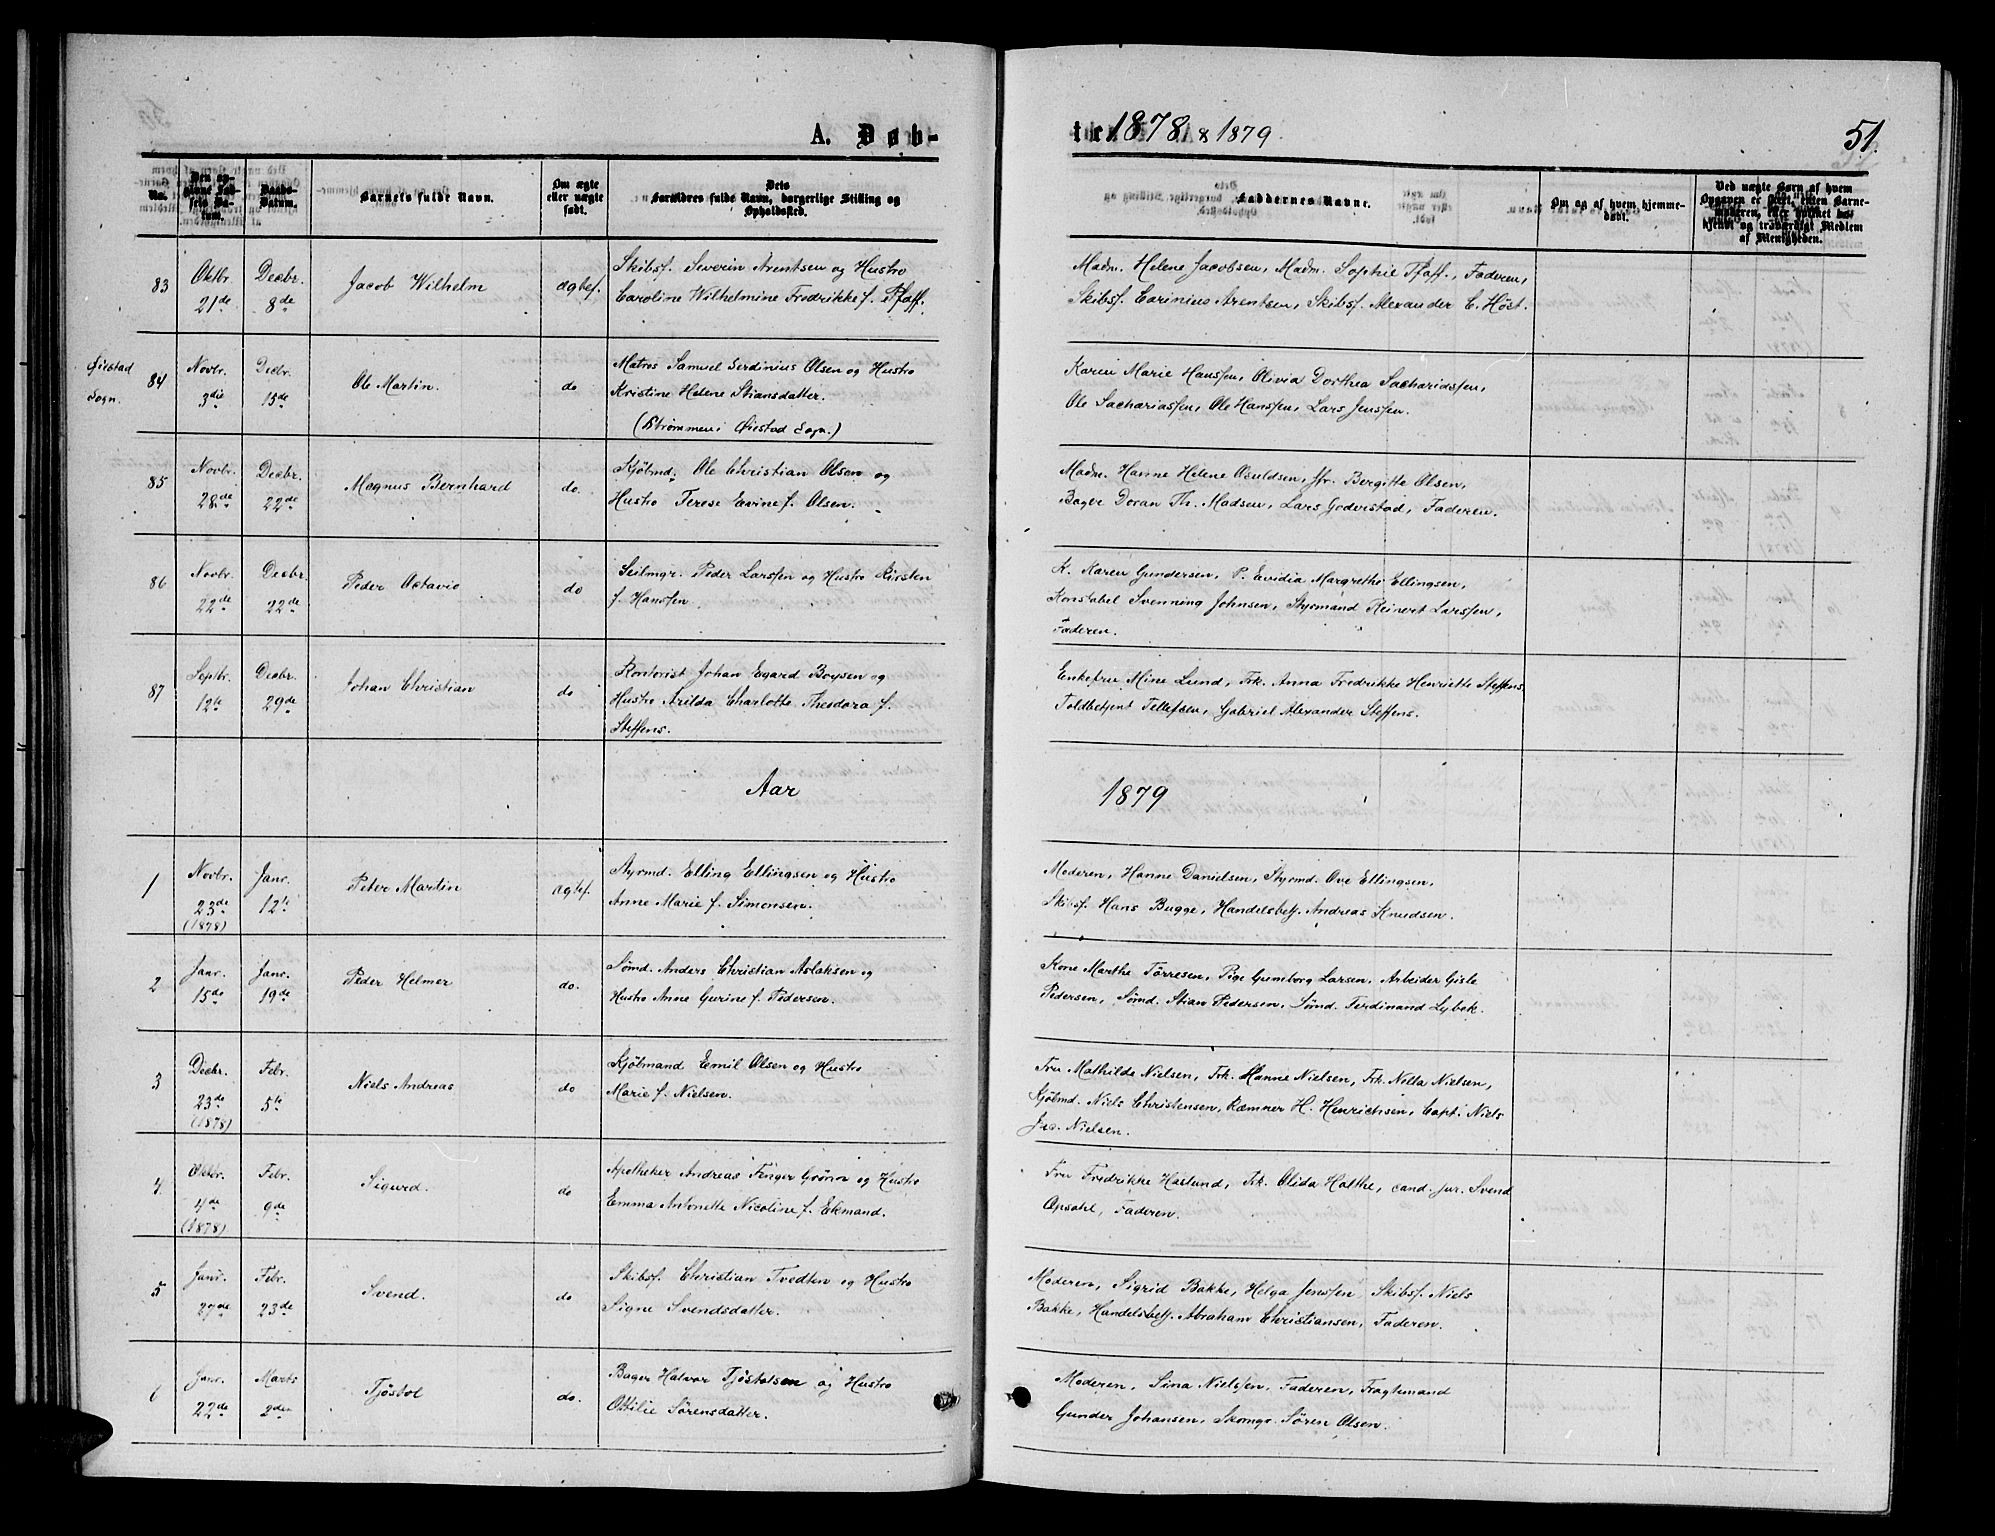 A. Døb-
te 1878 & 1879.
51
No.
Den op-
givne Fød-
sels Da-
tum.
Daabs-
Datum.
Barnets fulde Navn.
Om ægte
eller uægte
født.
Dets
Forældres fulde Navn, borgerlige Stilling og
Opholdssted.
Faddernes Navne.
Om og af hvem hjemme-
døbt.
Ved uægte Børn af hvem
Opgaven er skeet, enten Barne-
moderen, eller hvilket be-
kjendt og troværdigt Medlem
af Menigheden.
83
Oktbr.
21de
Decbr.
8de
Jacob Wilhelm
ægtef.
Skibsf. Severin Arentsen og Hustro
Caroline Wilhelmine Fredrikke f. Pfaff.
Madm. Helene Jacobsen, Madm. Sophie Pfaff, Faderen,
Skibsf. Carinius Arentsen, Skibsf. Alexander C. Høst.
Øiestad
Sogn.
84
Novbr.
3die
Decbr.
15de
Ole Martin.
do
Matros Samuel Serdinius Olsen og Hustro
Kristine Helene Stiansdatter.
(Strømmen i Øiestad Sogn.)
Karen Marie Hanssen, Olivia Dorthea Sachariassen,
Ole Sachariassen, Ole Hanssen, Lars Jenssen.
85
Novbr.
28de
Decbr.
22de
Magnus Bernhard
do.
Kjøbmd. Ole Christian Olsen og
Hustro Terese Evine f. Olsen.
Madm. Hanne Helene Osuldsen, Jfr. Bergitte Olsen,
Bager Doran Th. Madsen, Lars Goderstad, Faderen.
86
Novbr.
22de
Decbr.
22de
Peder Octavio
do
Seilmgr. Peder Larssen og Hustro Kirsten
f. Hanssen
K. Karen Gundersen, P. Evidia Margrethe Ellingsen,
Konstabel Svenning Johnsen, Styrmand Reinert Larssen,
Faderen.
87
Septbr.
12te
Decbr.
29de
Johan Christian
do
Kontorist Johan Egard Boysen og
Hustro Arilda Charlotte Theodora f.
Steffens.
Enkefru Mine Lund, Frk. Anna Fredrikke Henriette Steffens,
Toldbetjent Tellefsen, Gabriel Alexander Steffens.
Aar
1879
1
Novbr.
23de
(1878)
Janr.
12te
Peter Martin
ægtef.
Styrmd. Elling Ellingsen og Hustro
Anne Marie f. Simonsen.
Moderen, Hanne Danielsen, Styrmd. Ove Ellingsen,
Skibsf. Hans Bugge, Handelsbetj. Andreas Knudsen.
2
Janr.
15de
Janr.
19de
Peder Helmer
do.
Sømd. Anders Christian Aslaksen og
Hustro Anne Gurine f. Pedersen.
Kone Marthe Tørresen, Pige Gunborg Larsen, Arbeider Gisle
Pedersen, Sømd. Stian Pedersen, Sømd. Ferdinand Lybek.
3
Decbr.
23de
(1878)
Febr.
5te
Niels Andreas
do
Kjøbmand Emil Olsen og Hustro
Marie f. Nielsen.
Fru Mathilde Nielsen, Frk. Hanne Nielsen, Frk. Nella Nielsen,
Kjøbmd. Niels Christensen, Kæmner H. Henrichsen, Capt. Niels
Jac. Nielsen.
4
Oktbr.
4de
(1878)
Febr.
9de
Sigurd.
do
Apotheker Andreas Finger Grønn og Hustro
Emma Antonette Nicoline f. Ekmand.
Fru Fredrikke Haslund, Frk. Olida Holthe, cand. jur. Svend
Opsahl, Faderen.
5
Janr.
27de
Febr.
23de
Svend.
do
Skibsf. Christian Tvedten og Hustro
Signe Svendsdatter.
Moderen, Sigrid Bakke, Helga Jenssen Skibsf. Niels
Bakke, Handelsbetj. Abraham Christiansen, Faderen.
6
Janr.
22de
Marts
2den
Tjøstol
do.
Bager Halvor Tjøstolsen og Hustro
Ottilie Sørensdatter.
Moderen, Sina Nielssen, Faderen, Fragtemand
Gunder Johansen, Skomgr. Søren Olsen.